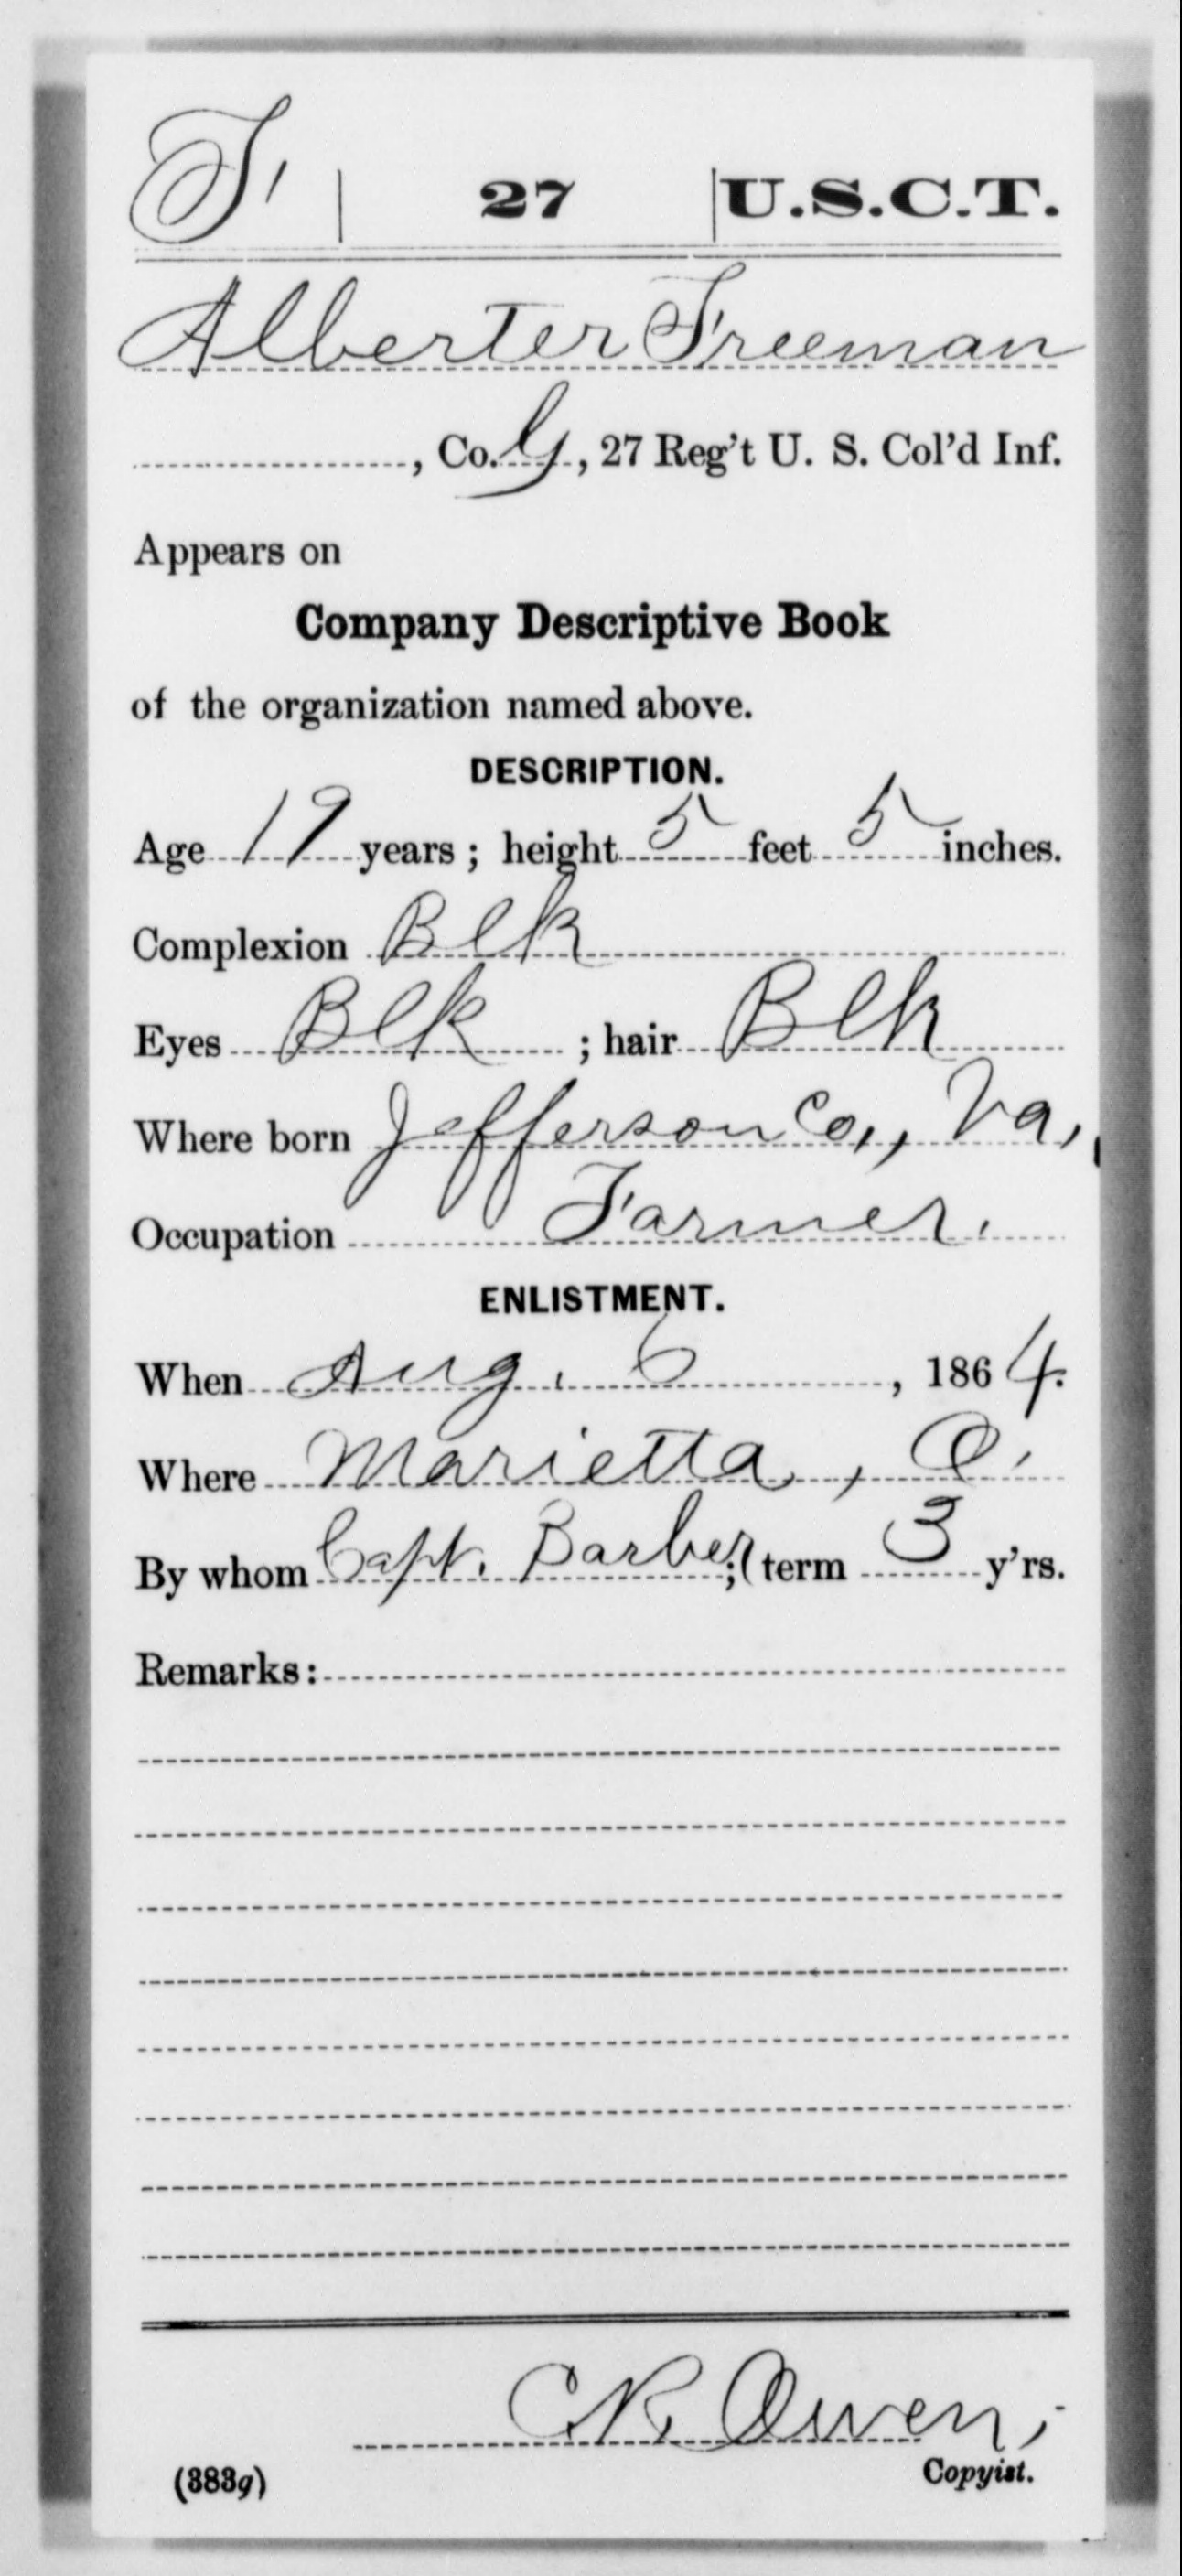 F | 27 | U.S.C.T.
Alberter Freeman
, Co. G, 27 Reg't U. S. Col'd Inf.
Appears on
Company Descriptive Book
of the organization named above.
DESCRIPTION.
Age 19 years; height 5 feet 5 inches.
Complexion Blk
Eyes Blk ; hair Blk
Where born Jefferson Co., Va.
Occupation Farmer.
ENLISTMENT.
When Aug. 6, 1864.
Where Marietta, O.
By whom Capt. Barber; term 3 y'rs.
Remarks:
C R Owen,
(383g) Copyist.